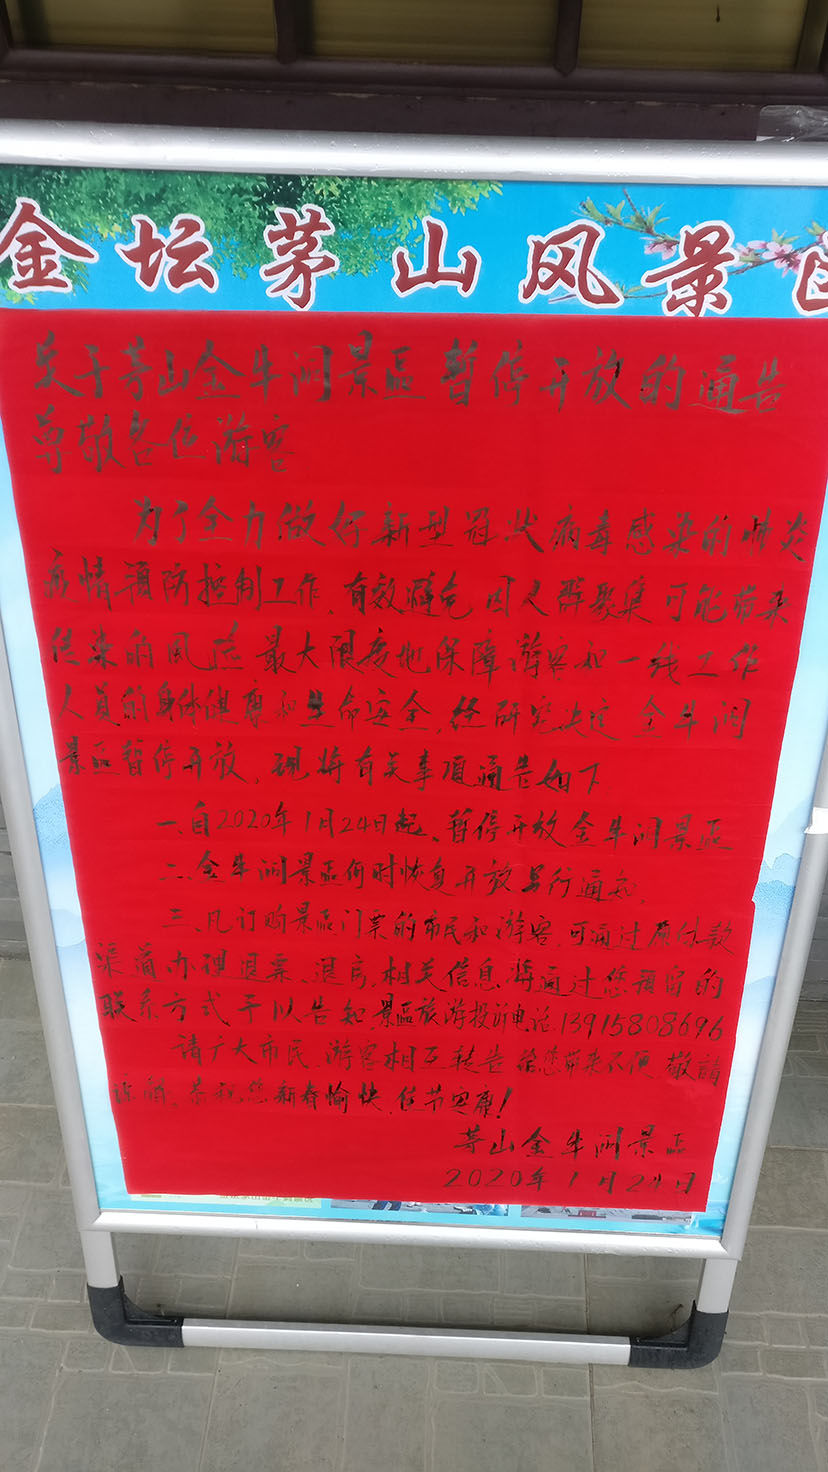 金坛茅山风景区
关于茅山金牛洞景區暂停开放的通告
尊敬各位游客
为了全力做好新型冠状病毒感染的肺炎
疫情预防控制工作,有效避免因人群聚集可能带来
传染的风险 最大限度地保障游客和一线工作
人员的身体健康和生命安全,经研究决定 金牛洞
景區暂停开放,现将有关事项通告如下
一、自2020年1月24日起、暂停开放金牛洞景區
二、金牛洞景區何时恢复开放另行通知,
三、凡订购景區门票的市民和游客,可通过原付款
渠道办理退票、退房,相关信息将通过您预留的
联系方式予以告知,景區旅游投诉电话13915808696
请广大市民、游客相互转告 给您带来不便 敬請
谅解。恭祝您新春愉快,佳节安康!
茅山金牛洞景區
2020年1月24日